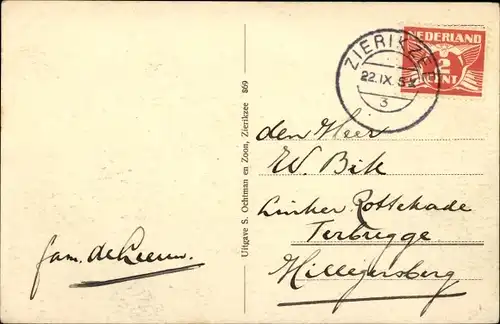 NEDERLAND
2
CENT
ZIERIKZEE
22.IX.5
3
Uitgave S. Ochtman en Zoon, Zierikzee 869
den Heer
W. Bik
Linker Rottekade
Terbregge
Hillegersberg
fam. de Leeuw.